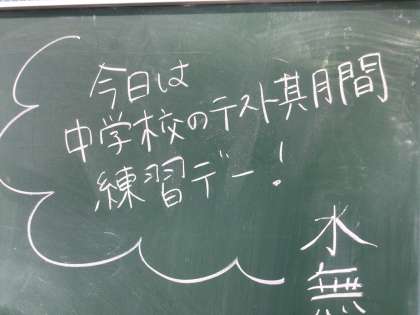 今日は
中学校のテスト期間
練習デー!
水
無